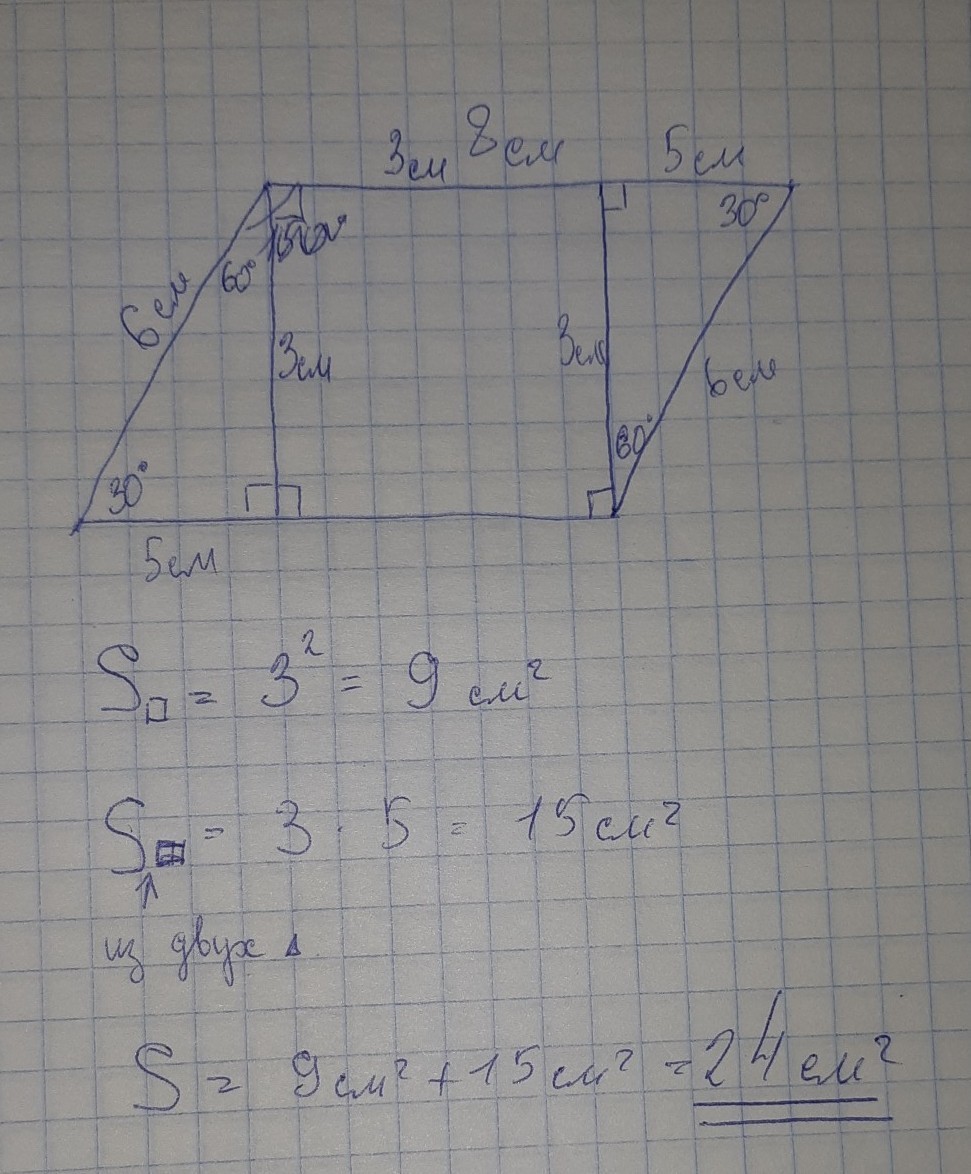 3см 8см 5см
30°
60°
6см
3см
3см
6см
60°
30°
5см
S□ = 3² = 9 см²
S = 3 · 5 = 15 см²
из двух Δ
S = 9см² + 15см² = 24см²